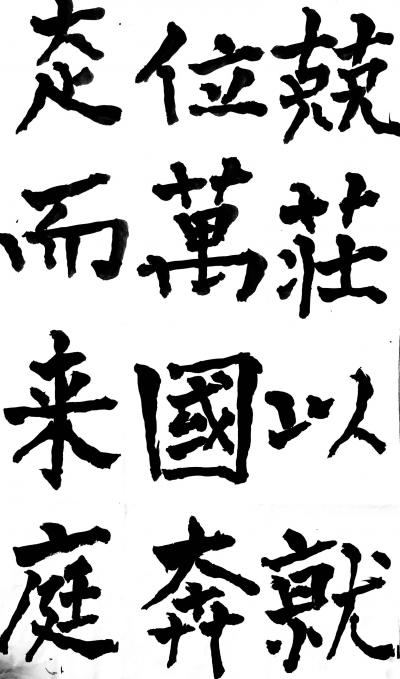 兢莊以就
位萬國奔
走而来庭